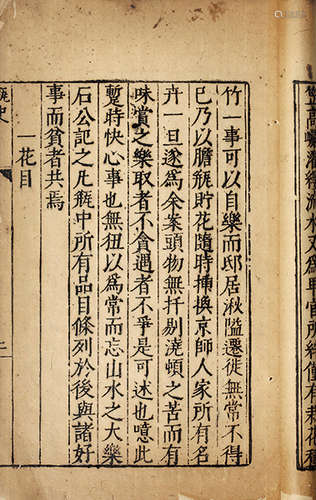 笠高巖濯纓流水又爲卑官所絆僅有栽花
竹一事可以自樂而邸居湫隘遷徙無常不得
已乃以膽缾貯花隨時揷換京師人家所有名
卉一旦遂爲余案頭物無扞剔澆頓之苦而有
味賞之樂取者不貪遇者不爭是可述也噫此
暫時快心事也無狃以爲常而忘山水之大樂
石公記之凡缾中所有品目條列於後與諸好
事而貧者共焉
一花目
史